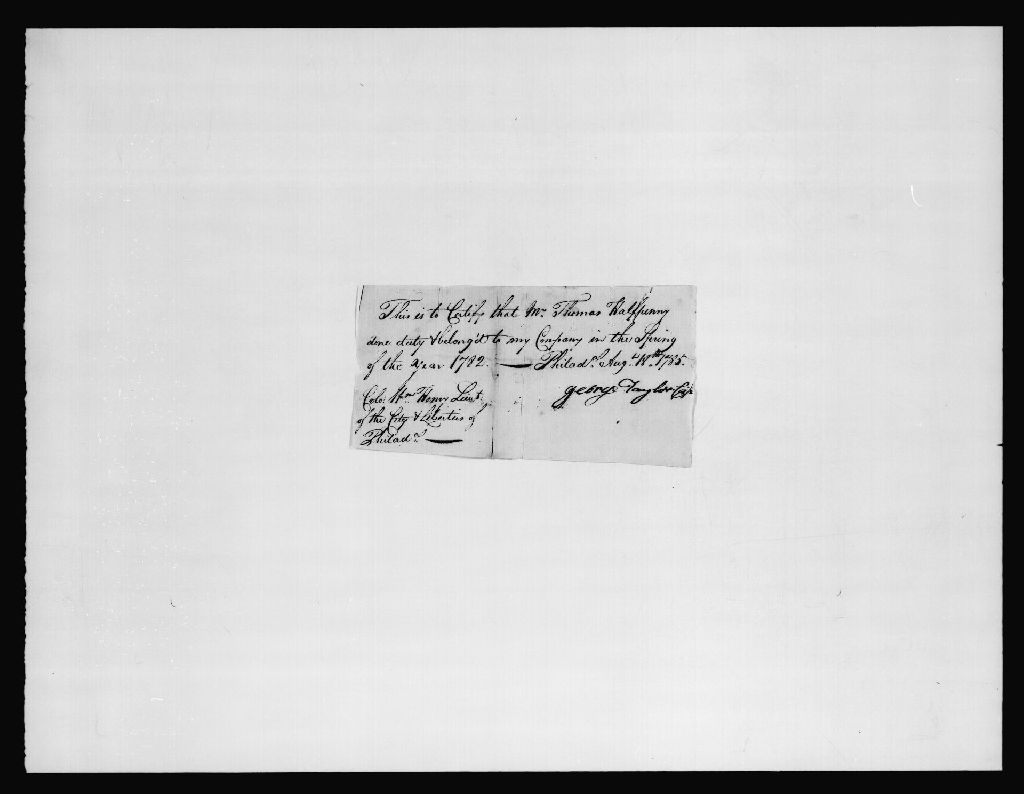 This is to Certify that Mr. Thomas Halfpenny
done duty & belong'd to my Company in the Spring
of the Year 1782. — Philada. Aug. 1785.
George Taylor Cap
Colo. Wm. Henry Lieut.
of the City & Liberties of
Philada. —